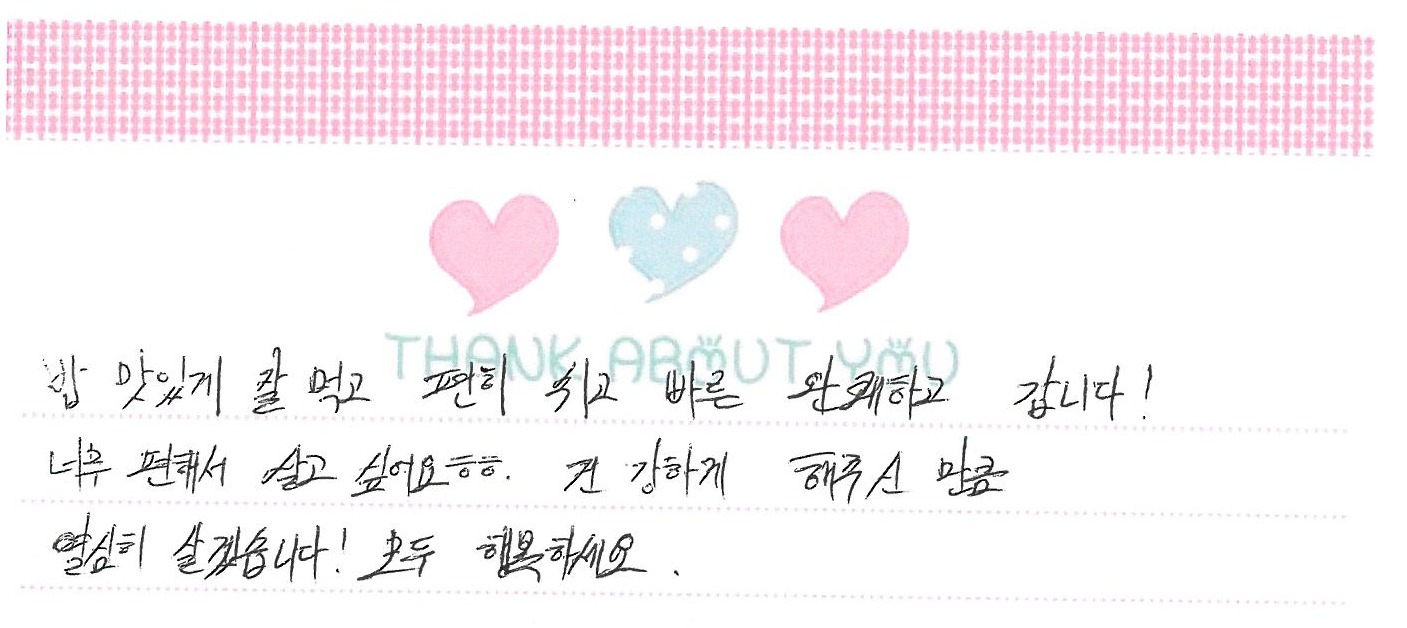 THANK ABOUT YOU
밥 맛있게 잘 먹고 편히 쉬고 빠른 완쾌하고 갑니다!
너무 편해서 살고 싶어요ㅎㅎ. 건강하게 해주신 만큼
열심히 살겠습니다! 모두 행복하세요.